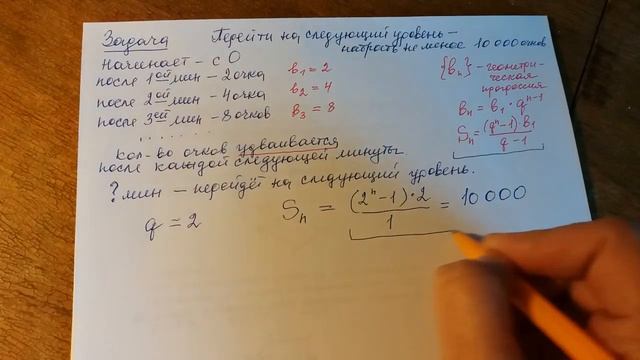 Задача Перейти на следующий уровень –
набрать не менее 10 000 очков
Начинает – с 0
после 1ой мин – 2 очка b₁ = 2
после 2ой мин – 4 очка b₂ = 4
после 3ей мин – 8 очков b₃ = 8
. . . . . . .
{bₙ} – геометри-
ческая
прогрессия
bₙ = b₁ · qⁿ⁻¹
Sₙ = (qⁿ–1)·b₁ / q–1
кол-во очков удваивается
после каждой следующей минуты
? мин – перейдёт на следующий уровень.
q = 2 Sₙ = (2ⁿ–1)·2 / 1 = 10 000